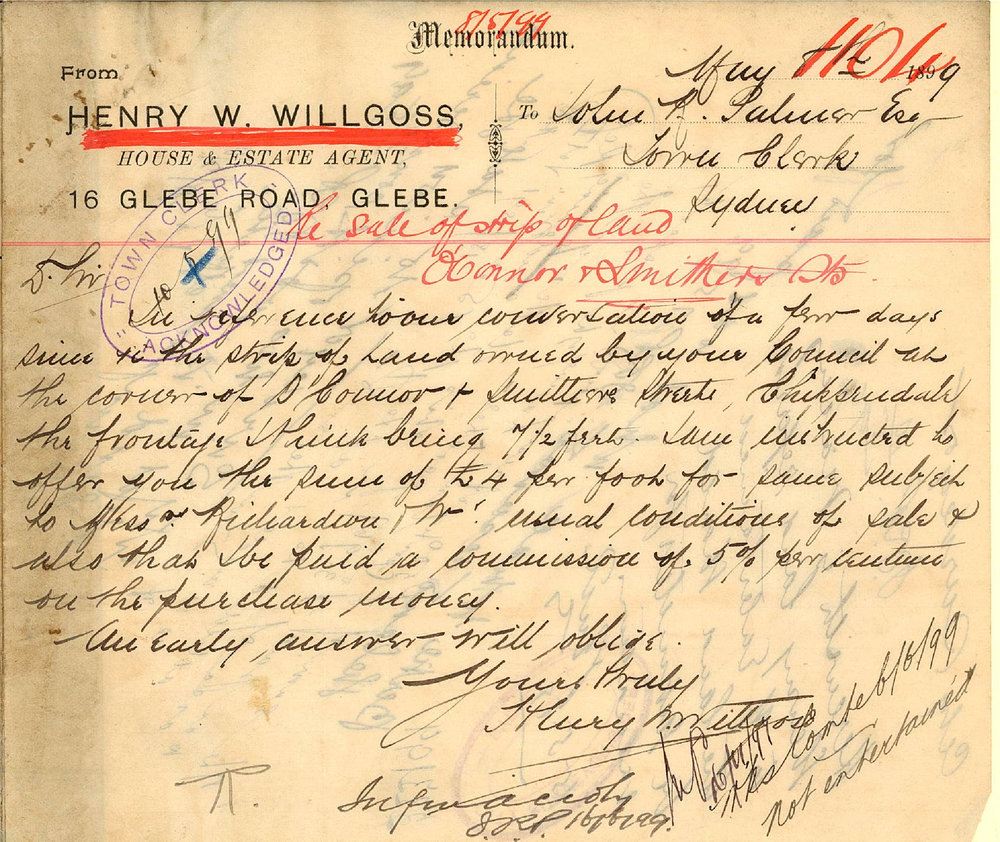 8/5/99
Memorandum.
From
HENRY W. WILLGOSS,
HOUSE & ESTATE AGENT,
16 GLEBE ROAD, GLEBE.
May 8th 1899
To John R. Palmer Esq
Town Clerk
Sydney
Re sale of strip of land
O'Connor & Smithers Sts.
TOWN CLERK
ACKNOWLEDGED
10 5 99
D. Sir
In reference to our conversation of a few days
since re the strip of land owned by your Council at
the corner of O'Connor & Smithers Streets, Chippendale
the frontage I think being 7 1/2 feet. I am instructed to
offer you the sum of £4 per foot for same subject
to Messrs Richardson & Wr. usual conditions of sale &
also that I be paid a commission of 5% per centum
on the purchase money.
An early answer will oblige.
Yours truly
Henry W. Willgoss
Wks Comtee 6/6/99
not entertained
Infm accdly
J.R.P. 16/6/99.